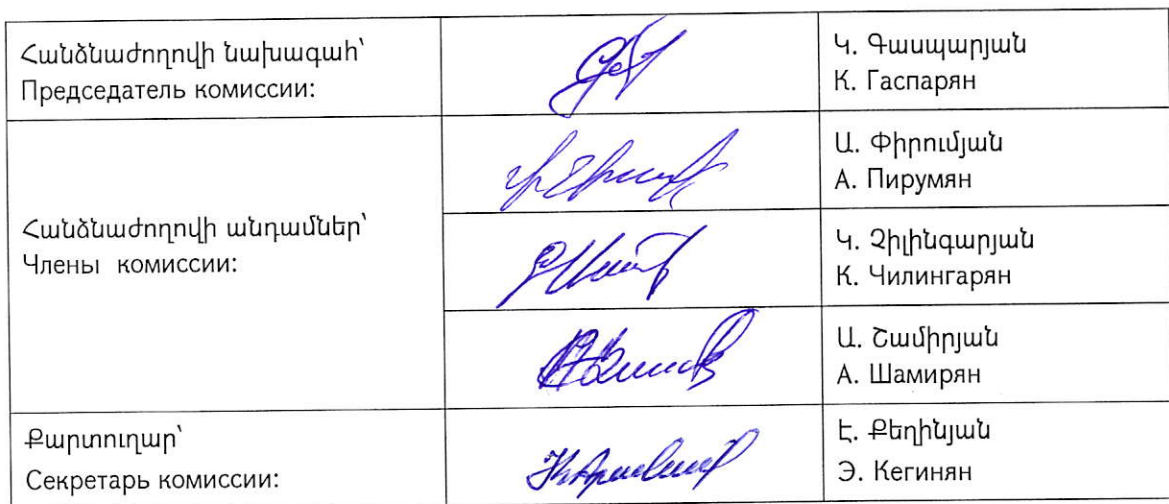 Հանձնաժողովի նախագահ՝
Председатель комиссии:
Կ. Գասպարյան
К. Гаспарян
Հանձնաժողովի անդամներ՝
Члены комиссии:
Ա. Փիրումյան
А. Пирумян
Կ. Չիլինգարյան
К. Чилингарян
Ա. Շամիրյան
А. Шамирян
Քարտուղար՝
Секретарь комиссии:
Է. Քեղինյան
Э. Кегинян